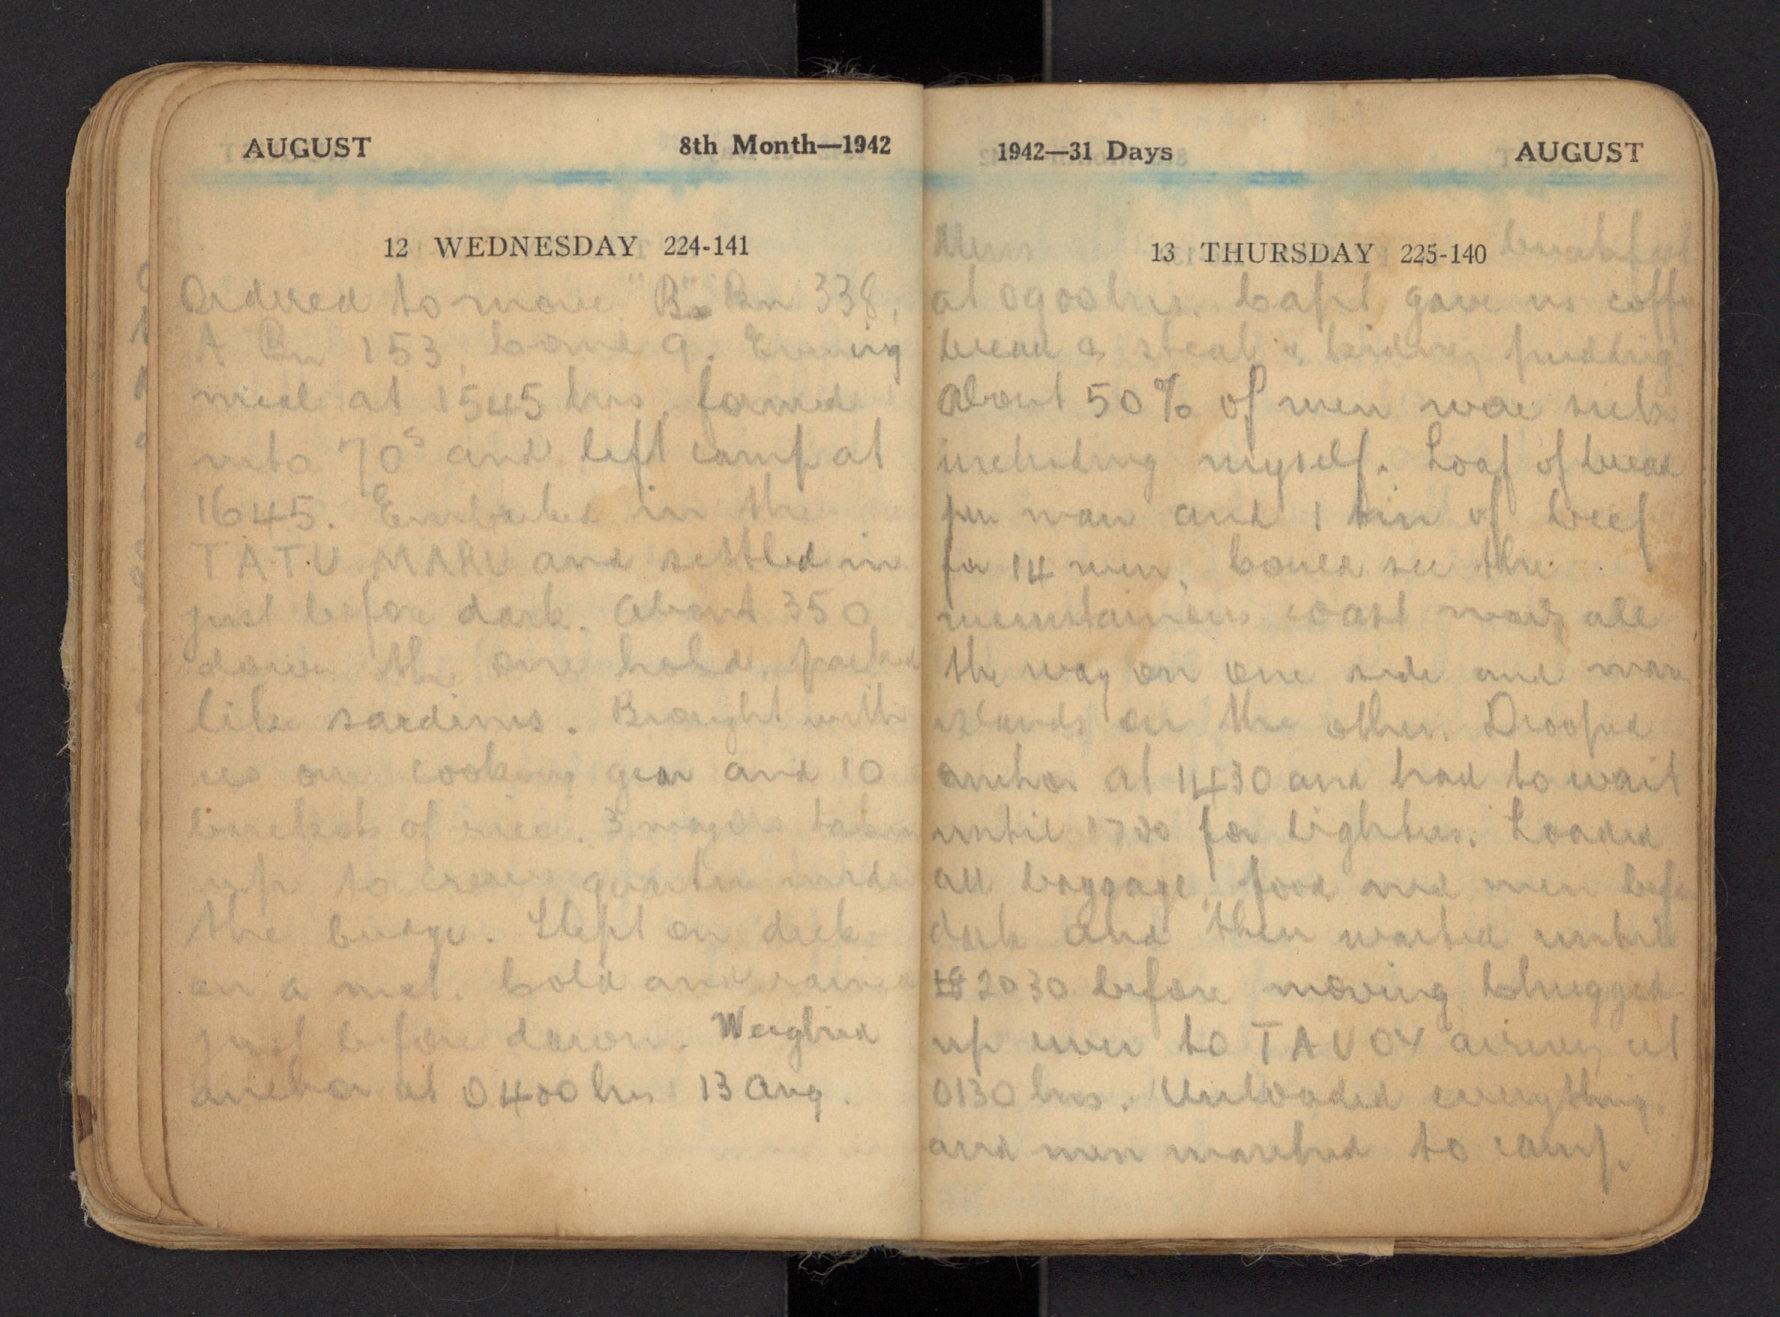 AUGUST 8th Month—1942
12 WEDNESDAY 224-141
Ordered to move. "B" Bn 338,
A Bn 153, Comd 9. Evening
meal at 1545 hrs, formed
into 70s and left camp at
1645. Embarked in the
TATU MARU and settled in
just before dark. About 350
down the one hold, packed
like sardines. Brought with
us our cooking gear and 10
baskets of rice. 3 majors taken
up to crews quarters under
the bridge. Slept on deck
on a mat. Cold and rained
just before dawn. Weighed
anchor at 0400 hrs 13 Aug.
1942—31 Days AUGUST
13 THURSDAY 225-140
breakfast
at 0900 hrs. Capt gave us coffee
bread & steak & kidney pudding.
About 50% of men were sick
including myself. Loaf of bread
per man and 1 tin of beef
for 14 men. Could see the
mountainous coast was all
the way on one side and many
islands on the other. Dropped
anchor at 1430 and had to wait
until 1730 for lighters. Loaded
all baggage, food and men before
dark and then waited until
2030 before moving. Chugged
up river to TAVOY arriving at
0130 hrs. Unloaded everything
and men marched to camp.